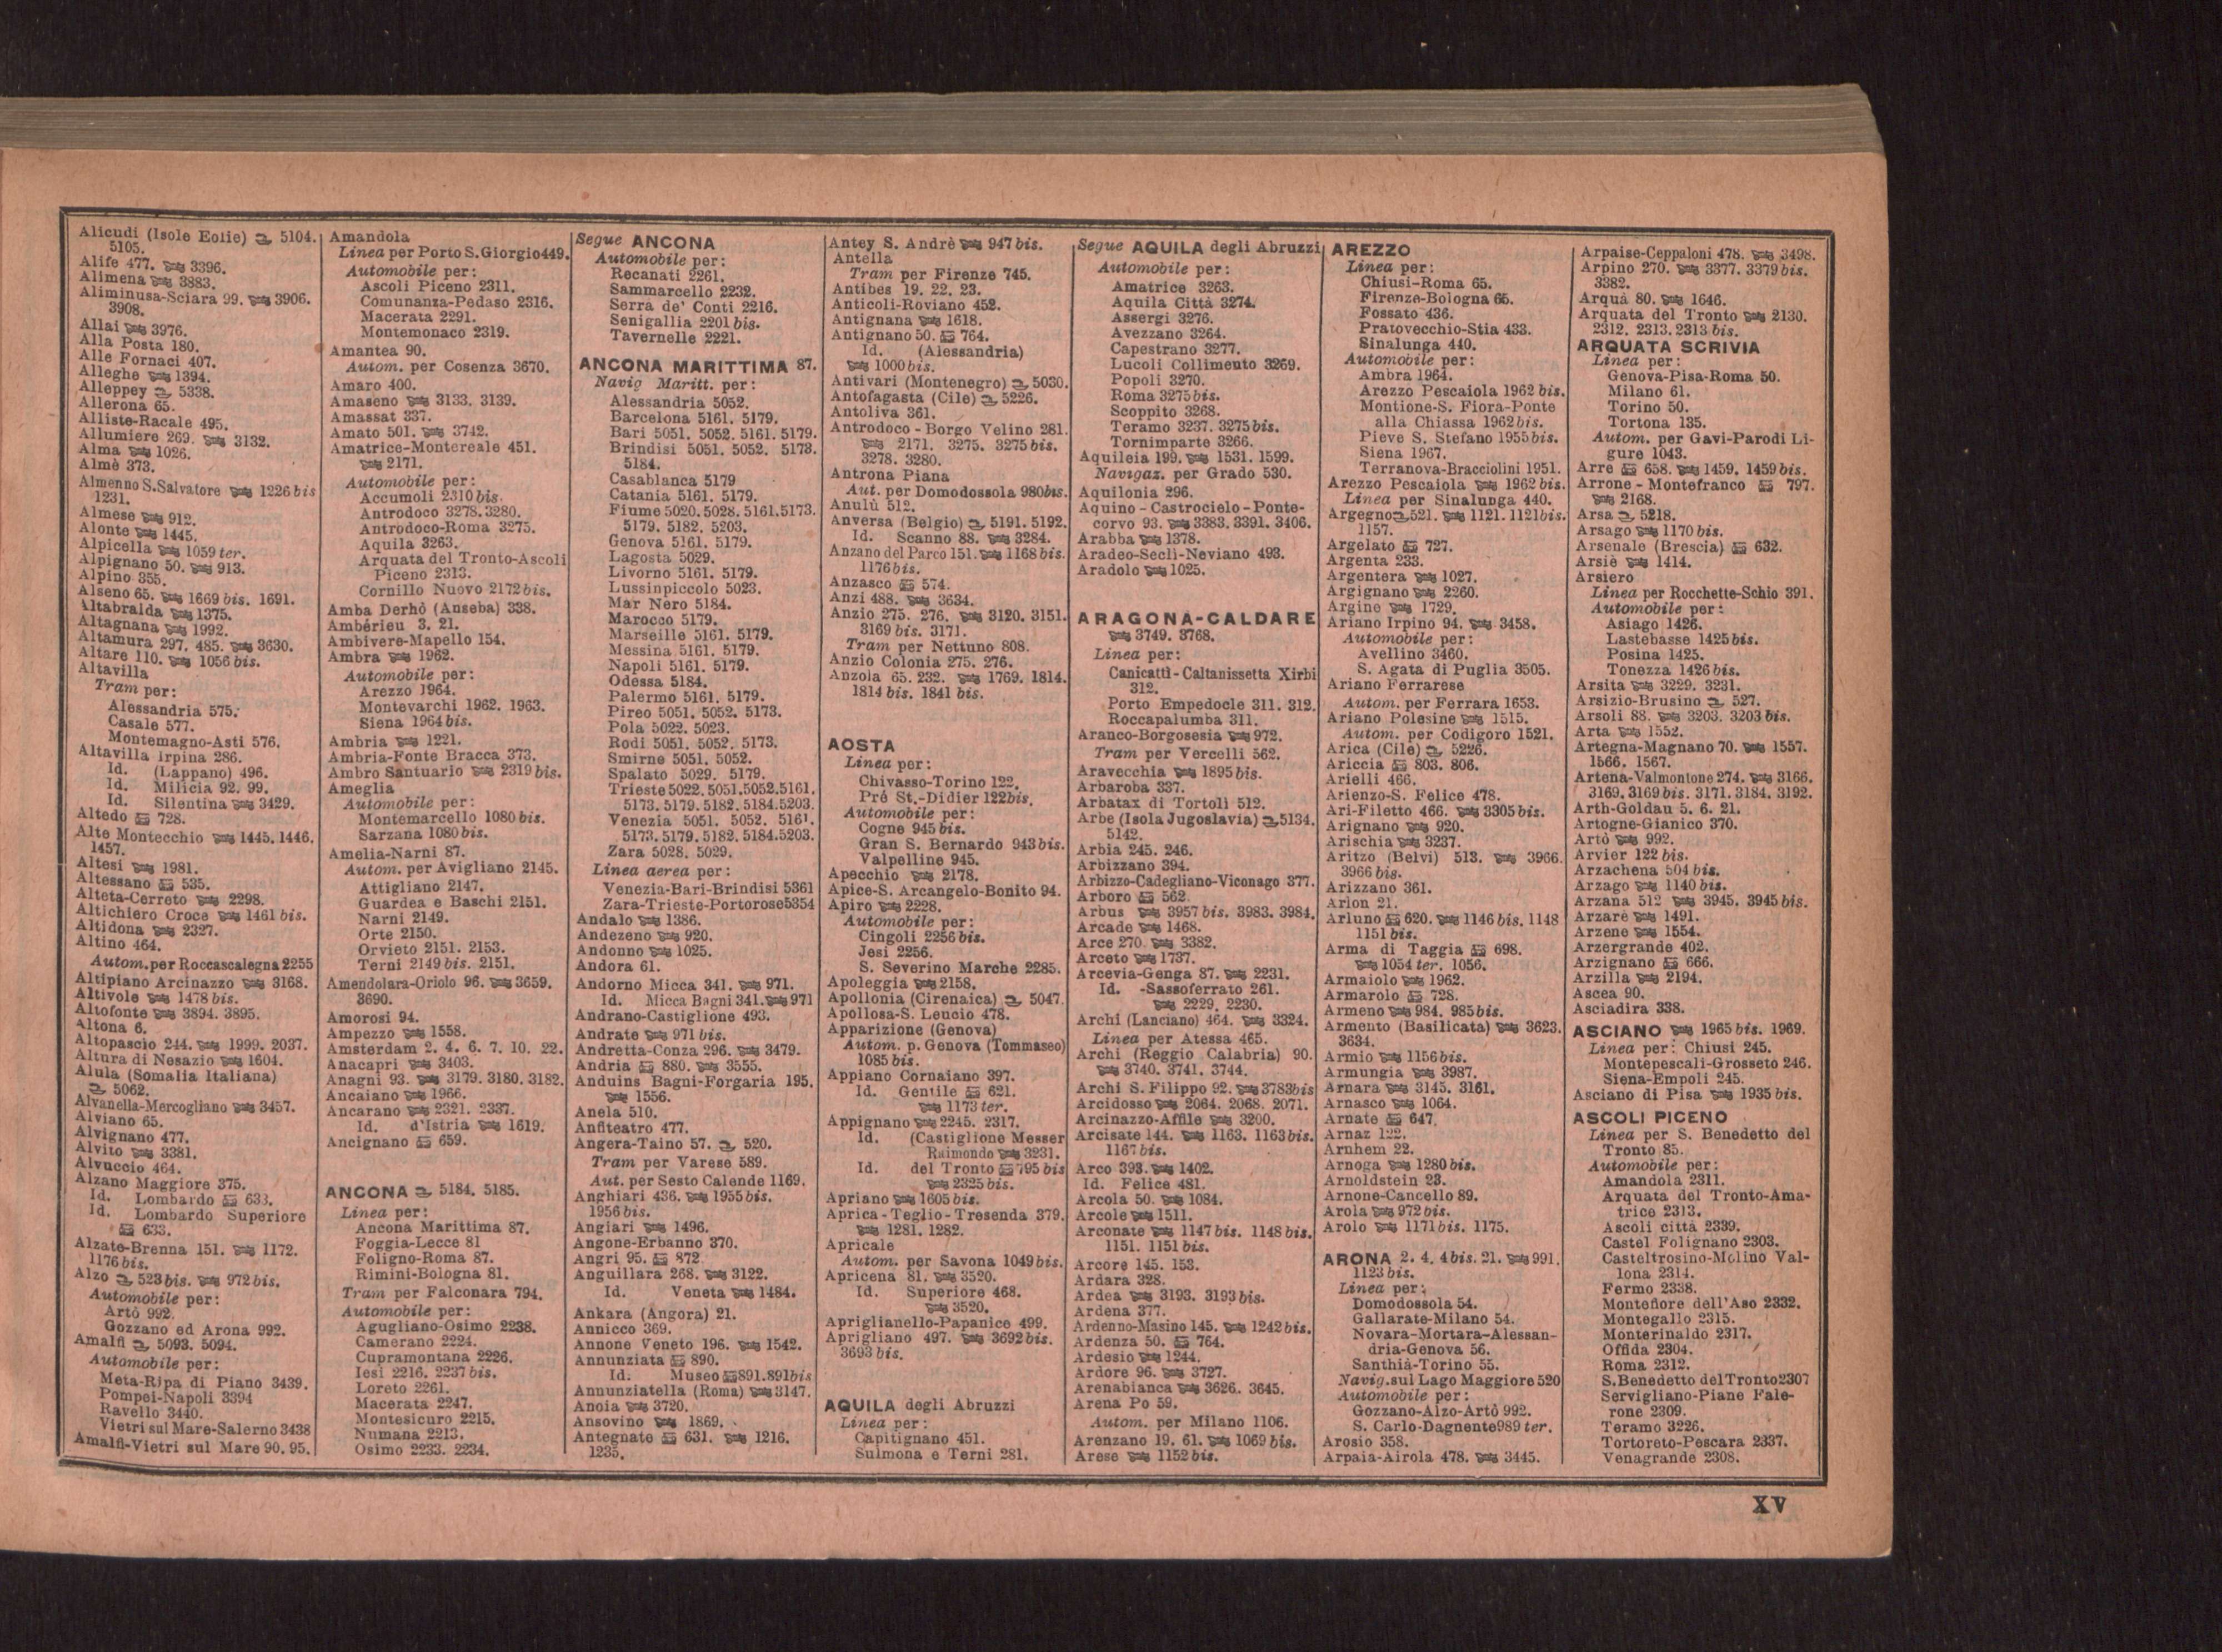 Alicudi (Isole Eolie) 5104.
5105.
Alife 477. 3396.
Alimena 3883.
Aliminusa-Sciara 99. 3906.
3908.
Allai 3976.
Alla Posta 180.
Alle Fornaci 407.
Alleghe 1394.
Alleppey 5338.
Allerona 65.
Alliste-Racale 495.
Allumiere 269. 3132.
Alma 1026.
Almè 373.
Almenno S.Salvatore 1226 bis
1231.
Almese 912.
Alonte 1445.
Alpicella 1059 ter.
Alpignano 50. 913.
Alpino 355.
Alseno 65. 1669 bis. 1691.
Altabralda 1375.
Altagnana 1992.
Altamura 297. 485. 3630.
Altare 110. 1056 bis.
Altavilla
Tram per:
Alessandria 575.
Casale 577.
Montemagno-Asti 576.
Altavilla Irpina 286.
Id. (Lappano) 496.
Id. Milicia 92. 99.
Id. Silentina 3429.
Altedo 728.
Alte Montecchio 1445. 1446.
1457.
Altesi 1981.
Altessano 535.
Alteta-Cerreto 2298.
Altichiero Croce 1461 bis.
Altidona 2327.
Altino 464.
Autom. per Roccascalegna 2255
Altipiano Arcinazzo 3168.
Altivole 1478 bis.
Altofonte 3894. 3895.
Altona 6.
Altopascio 244. 1999. 2037.
Altura di Nesazio 1604.
Alula (Somalia Italiana)
5062.
Alvanella-Mercogliano 3457.
Alviano 65.
Alvignano 477.
Alvito 3381.
Alvuccio 464.
Alzano Maggiore 375.
Id. Lombardo 633.
Id. Lombardo Superiore
633.
Alzate-Brenna 151. 1172.
1176 bis.
Alzo 523 bis. 972 bis.
Automobile per:
Artò 992.
Gozzano ed Arona 992.
Amalfi 5093. 5094.
Automobile per:
Meta-Ripa di Piano 3439.
Pompei-Napoli 3394
Ravello 3440.
Vietri sul Mare-Salerno 3438
Amalfi-Vietri sul Mare 90. 95.
Amandola
Linea per Porto S.Giorgio 449.
Automobile per:
Ascoli Piceno 2311.
Comunanza-Pedaso 2316.
Macerata 2291.
Montemonaco 2319.
Amantea 90.
Autom. per Cosenza 3670.
Amaro 400.
Amaseno 3133. 3139.
Amassat 337.
Amato 501. 3742.
Amatrice-Montereale 451.
2171.
Automobile per:
Accumoli 2310 bis.
Antrodoco 3278. 3280.
Antrodoco-Roma 3275.
Aquila 3263.
Arquata del Tronto-Ascoli
Piceno 2313.
Cornillo Nuovo 2172 bis.
Amba Derhò (Anseba) 338.
Ambérieu 3. 21.
Ambivere-Mapello 154.
Ambra 1962.
Automobile per:
Arezzo 1964.
Montevarchi 1962. 1963.
Siena 1964 bis.
Ambria 1221.
Ambria-Fonte Bracca 373.
Ambro Santuario 2319 bis.
Ameglia
Automobile per:
Montemarcello 1080 bis.
Sarzana 1080 bis.
Amelia-Narni 87.
Autom. per Avigliano 2145.
Attigliano 2147.
Guardea e Baschi 2151.
Narni 2149.
Orte 2150.
Orvieto 2151. 2153.
Terni 2149 bis. 2151.
Amendolara-Oriolo 96. 3659.
3690.
Amorosi 94.
Ampezzo 1558.
Amsterdam 2. 4. 6. 7. 10. 22.
Anacapri 3403.
Anagni 93. 3179. 3180. 3182.
Ancaiano 1966.
Ancarano 2321. 2337.
Id. d'Istria 1619.
Ancignano 659.
ANCONA 5184. 5185.
Linea per:
Ancona Marittima 87.
Foggia-Lecce 81
Foligno-Roma 87.
Rimini-Bologna 81.
Tram per Falconara 794.
Automobile per:
Agugliano-Osimo 2238.
Camerano 2224.
Cupramontana 2226.
Iesi 2216. 2237 bis.
Loreto 2261.
Macerata 2247.
Montesicuro 2215.
Numana 2213.
Osimo 2233. 2234.
Segue ANCONA
Automobile per:
Recanati 2261.
Sammarcello 2232.
Serra de' Conti 2216.
Senigallia 2201 bis.
Tavernelle 2221.
ANCONA MARITTIMA 87.
Navig Maritt. per:
Alessandria 5052.
Barcelona 5161. 5179.
Bari 5051. 5052. 5161. 5179.
Brindisi 5051. 5052. 5173.
5184.
Casablanca 5179
Catania 5161. 5179.
Fiume 5020. 5028. 5161. 5173.
5179. 5182. 5203.
Genova 5161. 5179.
Lagosta 5029.
Livorno 5161. 5179.
Lussinpiccolo 5023.
Mar Nero 5184.
Marocco 5179.
Marseille 5161. 5179.
Messina 5161. 5179.
Napoli 5161. 5179.
Odessa 5184.
Palermo 5161. 5179.
Pireo 5051. 5052. 5173.
Pola 5022. 5023.
Rodi 5051. 5052. 5173.
Smirne 5051. 5052.
Spalato 5029. 5179.
Trieste 5022. 5051. 5052. 5161.
5173. 5179. 5182. 5184. 5203.
Venezia 5051. 5052. 5161.
5173. 5179. 5182. 5184. 5203.
Zara 5028. 5029.
Linea aerea per:
Venezia-Bari-Brindisi 5361
Zara-Trieste-Portorose 5354
Andalo 1386.
Andezeno 920.
Andonno 1025.
Andora 61.
Andorno Micca 341. 971.
Id. Micca Bagni 341. 971
Andrano-Castiglione 493.
Andrate 971 bis.
Andretta-Conza 296. 3479.
Andria 880. 3555.
Anduins Bagni-Forgaria 195.
1556.
Anela 510.
Anfiteatro 477.
Angera-Taino 57. 520.
Tram per Varese 589.
Aut. per Sesto Calende 1169.
Anghiari 436. 1955 bis.
1956 bis.
Angiari 1496.
Angone-Erbanno 370.
Angri 95. 872
Anguillara 268. 3122.
Id. Veneta 1484.
Ankara (Angora) 21.
Annicco 369.
Annone Veneto 196. 1542.
Annunziata 890.
Id. Museo 891. 891 bis
Annunziatella (Roma) 3147.
Anoia 3720.
Ansovino 1869.
Antegnate 631. 1216.
1235.
Antey S. Andrè 947 bis.
Antella
Tram per Firenze 745.
Antibes 19. 22. 23.
Anticoli-Roviano 452.
Antignana 1618.
Antignano 50. 764.
Id. (Alessandria)
1000 bis.
Antivari (Montenegro) 5030.
Antofagasta (Cile) 5226.
Antoliva 361.
Antrodoco - Borgo Velino 281.
2171. 3275. 3275 bis.
3278. 3280.
Antrona Piana
Aut. per Domodossola 980 bis.
Anulù 512.
Anversa (Belgio) 5191. 5192.
Id. Scanno 88. 3284.
Anzano del Parco 151. 1168 bis.
1176 bis.
Anzasco 574.
Anzi 488. 3634.
Anzio 275. 276. 3120. 3151.
3169 bis. 3171.
Tram per Nettuno 808.
Anzio Colonia 275. 276.
Anzola 65. 232. 1769. 1814.
1814 bis. 1841 bis.
AOSTA
Linea per:
Chivasso-Torino 122.
Pré St.-Didier 122 bis.
Automobile per:
Cogne 945 bis.
Gran S. Bernardo 943 bis.
Valpelline 945.
Apecchio 2178.
Apice-S. Arcangelo-Bonito 94.
Apiro 2228.
Automobile per:
Cingoli 2256 bis.
Jesi 2256.
S. Severino Marche 2285.
Apoleggia 2158.
Apollonia (Cirenaica) 5047.
Apollosa-S. Leucio 478.
Apparizione (Genova)
Autom. p. Genova (Tommaseo)
1085 bis.
Appiano Cornaiano 397.
Id. Gentile 621.
1173 ter.
Appignano 2245. 2317.
Id. (Castiglione Messer
Raimondo 3231.
Id. del Tronto 795 bis
2325 bis.
Apriano 1605 bis.
Aprica - Teglio - Tresenda 379.
1281. 1282.
Apricale
Autom. per Savona 1049 bis.
Apricena 81. 3520.
Id. Superiore 468.
3520.
Apriglianello-Papanice 499.
Aprigliano 497. 3692 bis.
3693 bis.
AQUILA degli Abruzzi
Linea per:
Capitignano 451.
Sulmona e Terni 281.
Segue AQUILA degli Abruzzi
Automobile per:
Amatrice 3263.
Aquila Città 3274.
Assergi 3276.
Avezzano 3264.
Capestrano 3277.
Lucoli Collimento 3269.
Popoli 3270.
Roma 3275 bis.
Scoppito 3268.
Teramo 3237. 3275 bis.
Tornimparte 3266.
Aquileia 199. 1531. 1599.
Navigaz. per Grado 530.
Aquilonia 296.
Aquino - Castrocielo - Ponte-
corvo 93. 3383. 3391. 3406.
Arabba 1378.
Aradeo-Seclì-Neviano 493.
Aradolo 1025.
ARAGONA-CALDARE
3749. 3768.
Linea per:
Canicattì - Caltanissetta Xirbi
312.
Porto Empedocle 311. 312.
Roccapalumba 311.
Aranco-Borgosesia 972.
Tram per Vercelli 562.
Aravecchia 1895 bis.
Arbaroba 337.
Arbatax di Tortolì 512.
Arbe (Isola Jugoslavia) 5134.
5142.
Arbia 245. 246.
Arbizzano 394.
Arbizzo-Cadegliano-Viconago 377.
Arboro 562.
Arbus 3957 bis. 3983. 3984.
Arcade 1468.
Arce 270. 3382.
Arceto 1737.
Arcevia-Genga 87. 2231.
Id. -Sassoferrato 261.
2229. 2230.
Archi (Lanciano) 464. 3324.
Linea per Atessa 465.
Archi (Reggio Calabria) 90.
3740. 3741. 3744.
Archi S. Filippo 92. 3783 bis
Arcidosso 2064. 2068. 2071.
Arcinazzo-Affile 3200.
Arcisate 144. 1163. 1163 bis.
1167 bis.
Arco 393. 1402.
Id. Felice 481.
Arcola 50. 1084.
Arcole 1511.
Arconate 1147 bis. 1148 bis.
1151. 1151 bis.
Arcore 145. 153.
Ardara 328.
Ardea 3193. 3193 bis.
Ardena 377.
Ardenno-Masino 145. 1242 bis.
Ardenza 50. 764.
Ardesio 1244.
Ardore 96. 3727.
Arenabianca 3626. 3645.
Arena Po 59.
Autom. per Milano 1106.
Arenzano 19. 61. 1069 bis.
Arese 1152 bis.
AREZZO
Linea per:
Chiusi-Roma 65.
Firenze-Bologna 65.
Fossato 436.
Pratovecchio-Stia 433.
Sinalunga 440.
Automobile per:
Ambra 1964.
Arezzo Pescaiola 1962 bis.
Montione-S. Fiora-Ponte
alla Chiassa 1962 bis.
Pieve S. Stefano 1955 bis.
Siena 1967.
Terranova-Bracciolini 1951.
Arezzo Pescaiola 1962 bis.
Linea per Sinalunga 440.
Argegno 521. 1121. 1121 bis.
1157.
Argelato 727.
Argenta 233.
Argentera 1027.
Argignano 2260.
Argine 1729.
Ariano Irpino 94. 3458.
Automobile per:
Avellino 3460.
S. Agata di Puglia 3505.
Ariano Ferrarese
Autom. per Ferrara 1653.
Ariano Polesine 1515.
Autom. per Codigoro 1521.
Arica (Cile) 5226.
Ariccia 803. 806.
Arielli 466.
Arienzo-S. Felice 478.
Ari-Filetto 466. 3305 bis.
Arignano 920.
Arischia 3237.
Aritzo (Belvì) 513. 3966.
3966 bis.
Arizzano 361.
Arlon 21.
Arluno 620. 1146 bis. 1148
1151 bis.
Arma di Taggia 698.
1054 ter. 1056.
Armaiolo 1962.
Armarolo 728.
Armeno 984. 985 bis.
Armento (Basilicata) 3623.
3634.
Armio 1156 bis.
Armungia 3987.
Arnara 3145. 3161.
Arnasco 1064.
Arnate 647.
Arnaz 122.
Arnhem 22.
Arnoga 1280 bis.
Arnoldstein 23.
Arnone-Cancello 89.
Arola 972 bis.
Arolo 1171 bis. 1175.
ARONA 2. 4. 4 bis. 21. 991.
1123 bis.
Linea per:
Domodossola 54.
Gallarate-Milano 54.
Novara-Mortara-Alessan-
dria-Genova 56.
Santhià-Torino 55.
Navig. sul Lago Maggiore 520
Automobile per:
Gozzano-Alzo-Artò 992.
S. Carlo-Dagnente 989 ter.
Arosio 358.
Arpaia-Airola 478. 3445.
Arpaise-Ceppaloni 478. 3498.
Arpino 270. 3377. 3379 bis.
3382.
Arquà 80. 1646.
Arquata del Tronto 2130.
2312. 2313. 2313 bis.
ARQUATA SCRIVIA
Linea per:
Genova-Pisa-Roma 50.
Milano 61.
Torino 50.
Tortona 135.
Autom. per Gavi-Parodi Li-
gure 1043.
Arre 658. 1459. 1459 bis.
Arrone - Montefranco 797.
2168.
Arsa 5218.
Arsago 1170 bis.
Arsenale (Brescia) 632.
Arsiè 1414.
Arsiero
Linea per Rocchette-Schio 391.
Automobile per:
Asiago 1426.
Lastebasse 1425 bis.
Posina 1425.
Tonezza 1426 bis.
Arsita 3229. 3231.
Arsizio-Brusino 527.
Arsoli 88. 3203. 3203 bis.
Arta 1552.
Artegna-Magnano 70. 1557.
1566. 1567.
Artena-Valmontone 274. 3166.
3169. 3169 bis. 3171. 3184. 3192.
Arth-Goldau 5. 6. 21.
Artogne-Gianico 370.
Artò 992.
Arvier 122 bis.
Arzachena 504 bis.
Arzago 1140 bis.
Arzana 512 3945. 3945 bis.
Arzarè 1491.
Arzene 1554.
Arzergrande 402.
Arzignano 666.
Arzilla 2194.
Ascea 90.
Asciadira 338.
ASCIANO 1965 bis. 1969.
Linea per: Chiusi 245.
Montepescali-Grosseto 246.
Siena-Empoli 245.
Asciano di Pisa 1935 bis.
ASCOLI PICENO
Linea per S. Benedetto del
Tronto 85.
Automobile per:
Amandola 2311.
Arquata del Tronto-Ama-
trice 2313.
Ascoli città 2339.
Castel Folignano 2303.
Casteltrosino-Molino Val-
lona 2314.
Fermo 2338.
Montefiore dell'Aso 2332.
Montegallo 2315.
Monterinaldo 2317.
Offida 2304.
Roma 2312.
S. Benedetto del Tronto 2307
Servigliano-Piane Fale-
rone 2309.
Teramo 3226.
Tortoreto-Pescara 2337.
Venagrande 2308.
XV